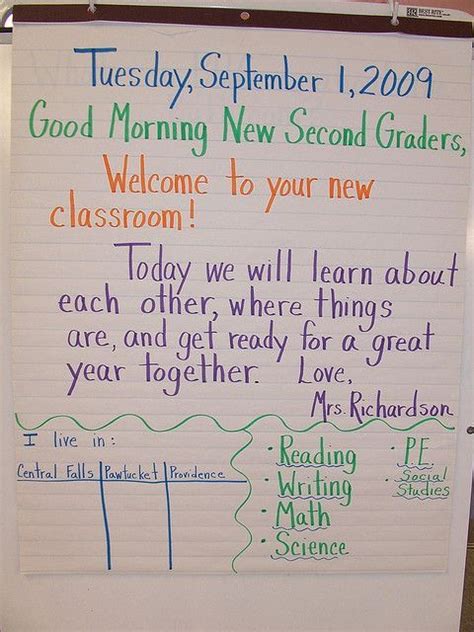 BEST-RITE
Tuesday, September 1, 2009
Good Morning New Second Graders,
Welcome to your new
classroom!
Today we will learn about
each other, where things
are, and get ready for a great
year together. Love,
Mrs. Richardson
I live in:
Central Falls Pawtucket Providence
• Reading
• Writing
• Math
• Science
• PE
• Social
Studies